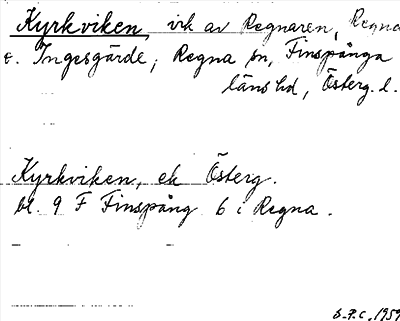 Kyrkviken, vik av Regnaren, Regna
o. Ingesgärde, Regna sn, Finspånga
läns hd, Österg. l.
Kyrkviken, ek Österg.
bl. 9 F Finspång 6 i Regna.
S.P.C., 1959